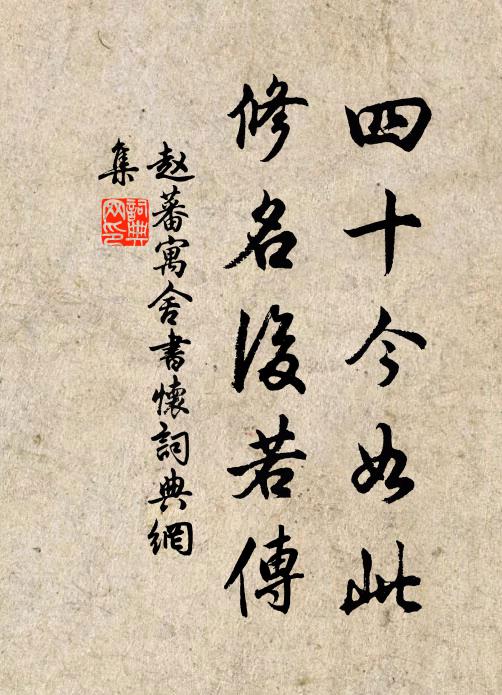 四十今如此
修名後若傳
赵蕃寓舍書懷詞典網
集
詞典
网印